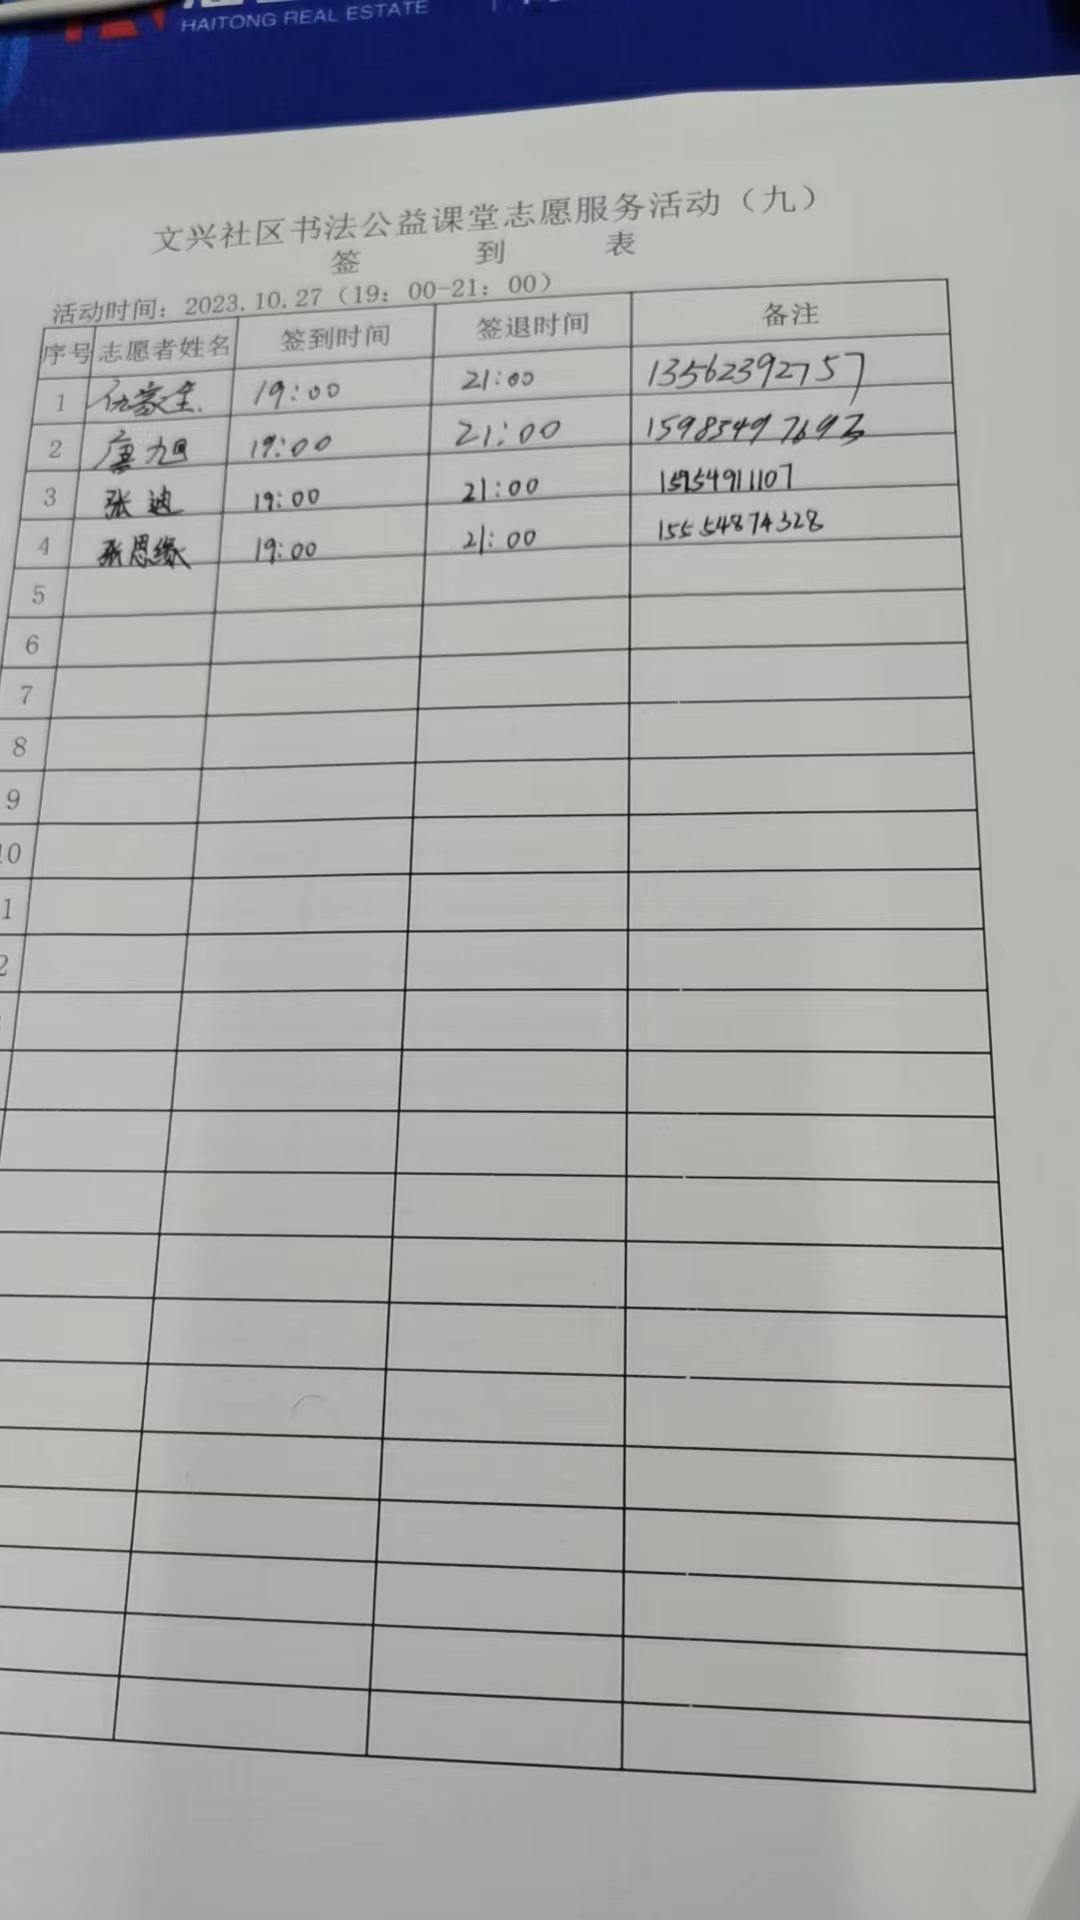 HAITONG REAL ESTATE
文兴社区书法公益课堂志愿服务活动（九）
签 到 表
活动时间：2023.10.27（19：00-21：00）
序号 志愿者姓名 签到时间 签退时间 备注
1 仇家宝 19:00 21:00 13562392757
2 唐旭 19:00 21:00 15983497693
3 张迪 19:00 21:00 15954911107
4 张思缘 19:00 21:00 15554874328
5
6
7
8
9
10
1
2